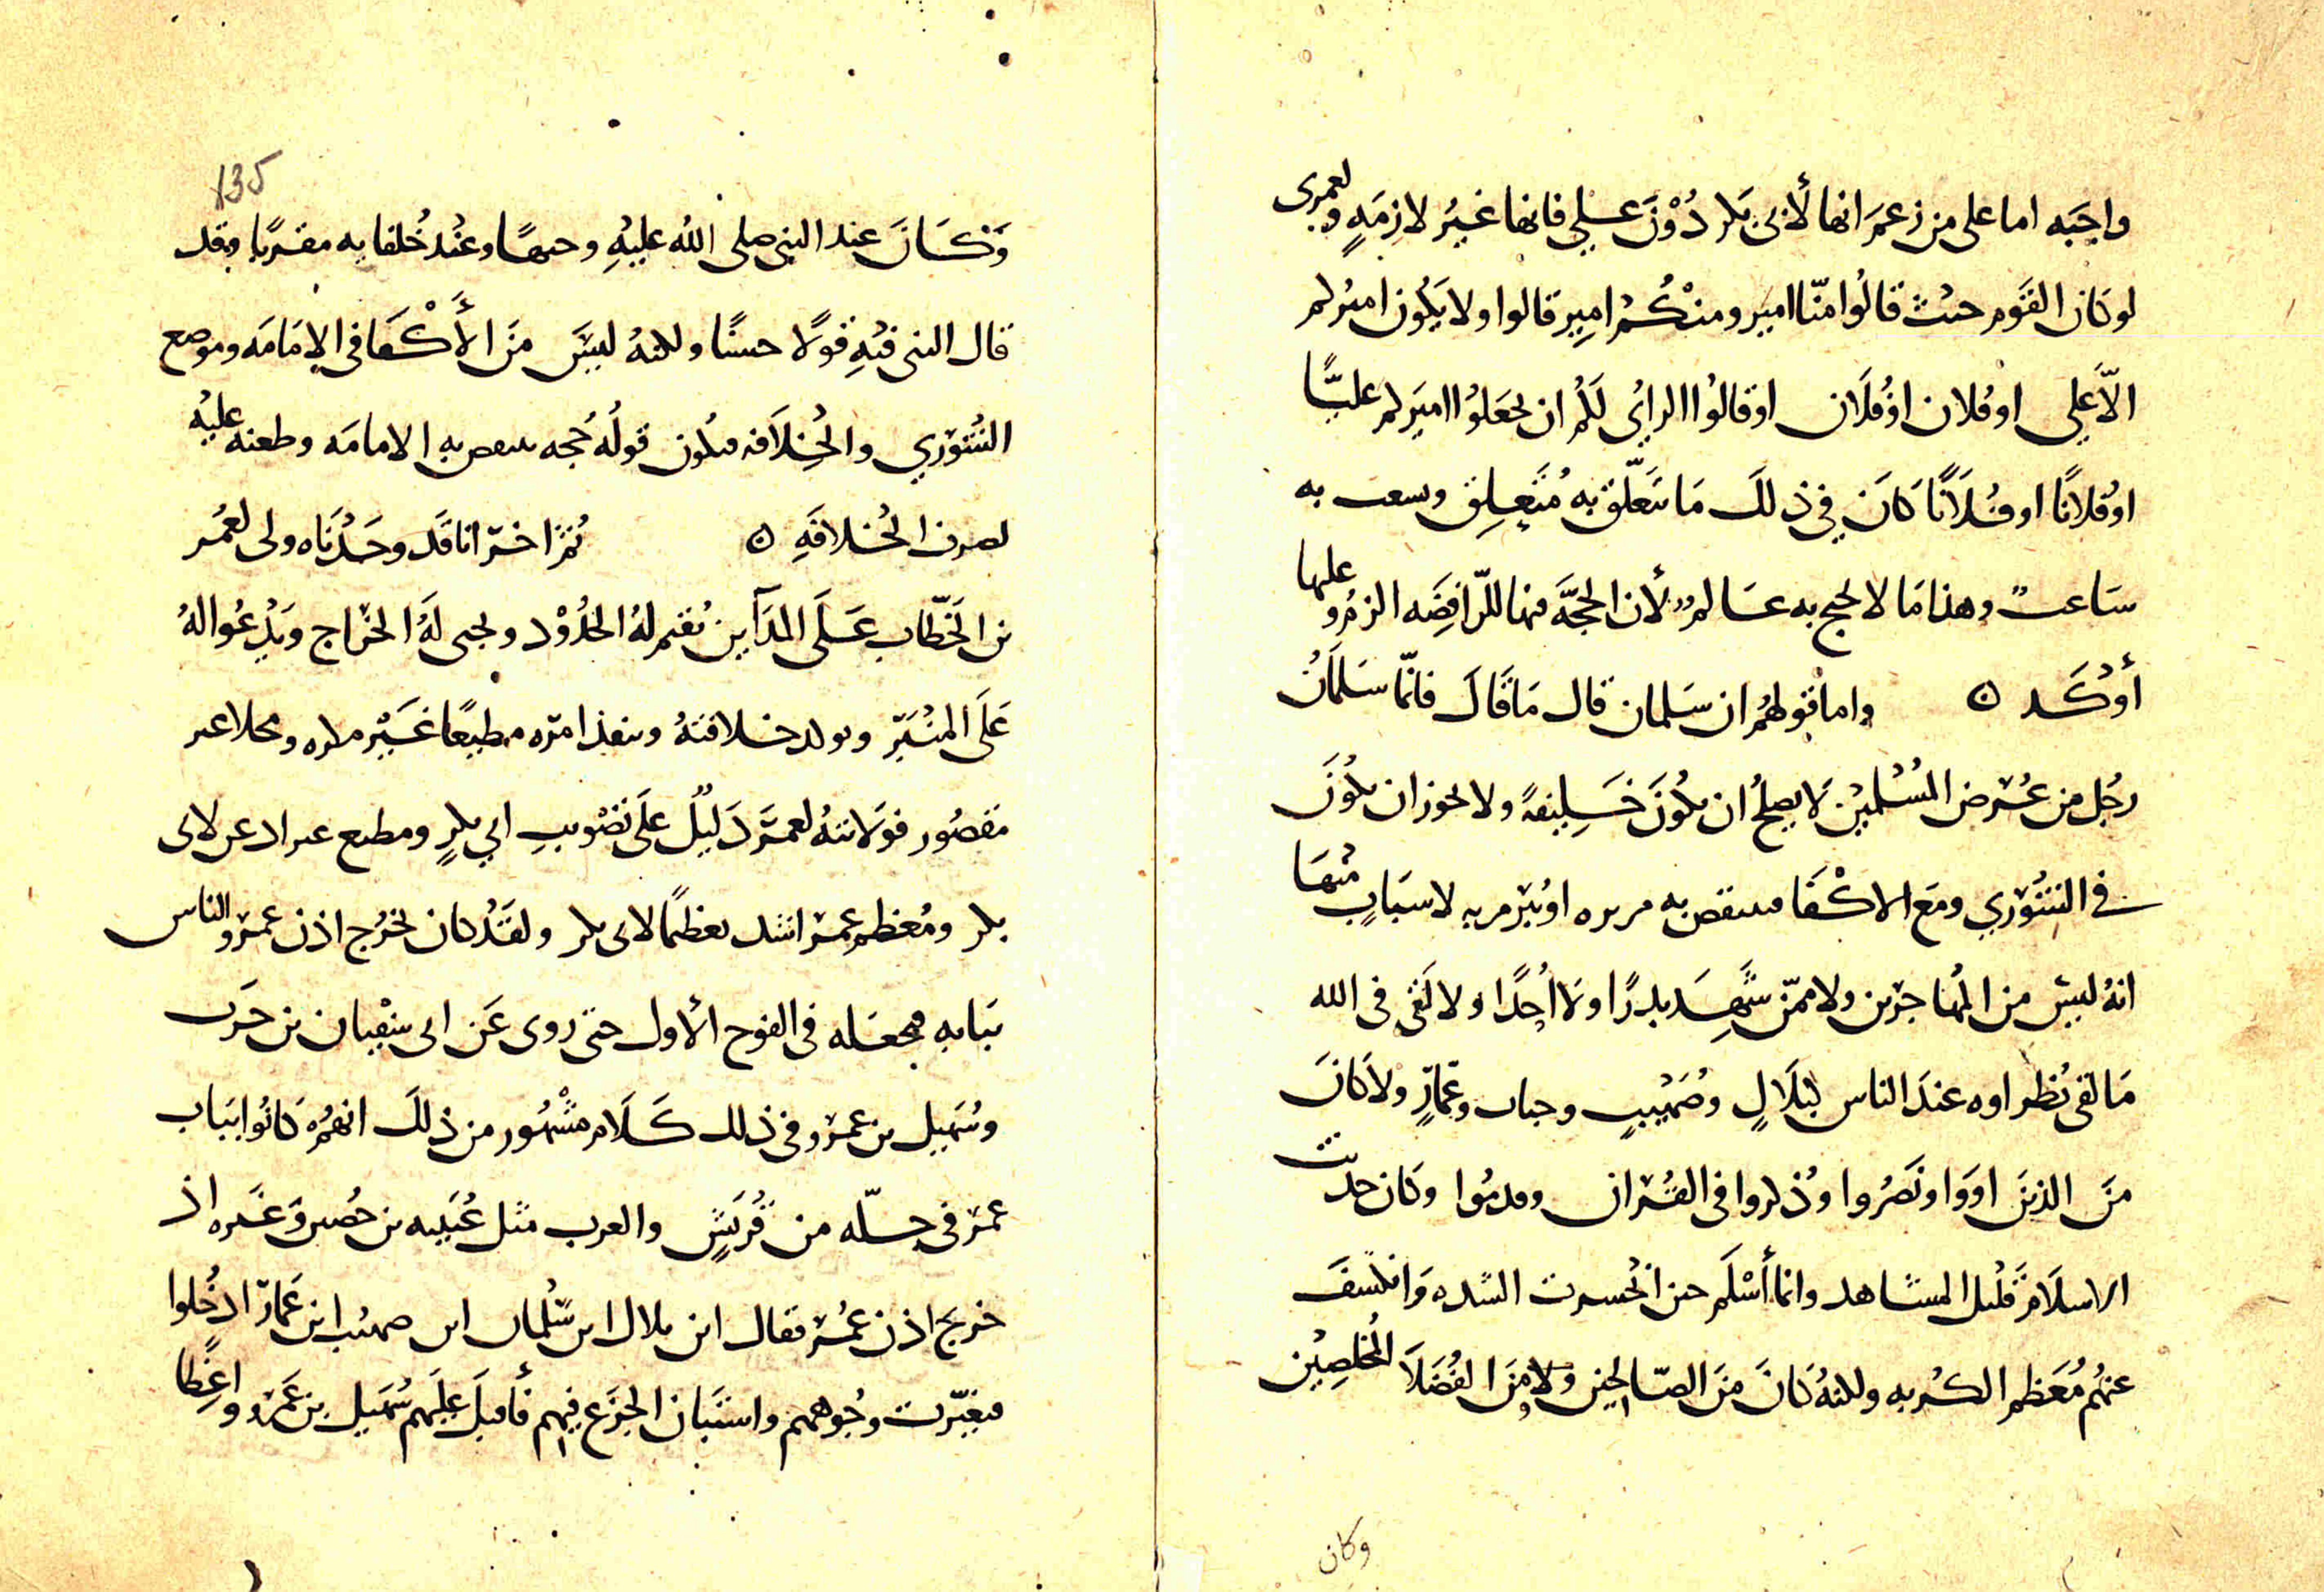 واجبه اما على من زعم انها لأبى بكر دُوْنَ عَلِي فانها غيرُ لازِمَةٍ ولعمرى
لو كان القَوم حيث قالُوا منّا امير ومنكُم امِير قالوا ولا يكُون اميركم
الاّ عَلِي او فُلان اوْ فُلَان او قالوُا الرايُ لَكُم ان تجعَلوُا اميركم عليًّا
او فُلانًا او فُلَانًا كَانَ فِي ذ لكَ مَا يتعَلّق بهِ مُتَعلِق وسعب به
سَاعب وهذا مَا لا يحتج به عَالم لأن الحجَّة فيها للرّافِضَه الزم وعليها
أوْكَد ن واما قولهُم ان سَلمان قال مَا قَالَ فانّما سَلمَانُ
رجُل من عُرض المُسْلمِيْن لَا يصلُح ان يكُونَ خَلِيفةً ولا يجوز ان يكُونَ
في الشُوْرِي ومَع الاكْفَا فينتقض به مريره اوْ يبرم به لاسبَابٍ منْهَا
انهُ ليسَ من المُهاجرين ولا ممّن شَهِدَ بدرًا ولَا أُحُدًا ولا لَقى فى الله
مَا لقى نُظراوه عندَ الناس كبلَالٍ وصُهَيْبٍ وخباب وعَمّارٍ ولا كَانَ
منَ الذينَ اووَا ونَصَرُوا وذُكروا فى القُرَان وقدمُوا وكان حديث
الاسلَام قَليْل المشاهد وانما أسْلَم حين انحسرت الشده وَانكشفَ
عنهُم مُعَظم الكُربه ولكنهُ كَانَ منَ الصّالحين ولا منَ الفُضَلَا المُخلِصِيْن
وكان
135
وَكَانَ عند النبى صلى الله عليْهِ وجيهًا وعنْد خُلفايه مقربًا وقد
قال النبى فيْهِ قوْلًا حسنًا ولكنهُ ليسَ منَ الأكْفَا فى الامَامَه وموضع
الشُوْرِي والخِلَافه فيكُون قولُه حُجه ينتقض بهِ الامامَه وطعنه عليْه
لصرف الخلافَهِ ن ثم اخر انا قَد وجَدْنَاه ولى لعُمَر
بن الخَطّاب عَلَى المدَآين يُقيم لهُ الحُدُوْد ويجبى لَهُ الخرَاج وَيَدْعُوا لهُ
عَلَى المنْبَر ويوكد خلافتهُ وينفذ امره مطيعًا غَيْر مكره ومخلا غير
مقصُور فوَلايتهُ لعمَر دَليْل علَى تصْويبِ ابي بكرٍ ومطيع عمر اد عن لابى
بكر ومُعْظم عمر اشد تعظيمًا لابى بكر ولقَدْ كان يخرُج اذن عمر والناس
ببَابه فيجعَله فى الفوج الأول حتى روى عَن ابى سفْيان بن حَرب
وسُهَيل بن عمرو فى ذلك كَلَام مَشْهُور من ذلكَ انهمُ كَانُوا ببَاب
عمر فى جلّه من قُريشٍ والعرب مثل عُيَينه بن حُصن وَغَيره اذ
خرج اذن عُمَر فقال اين بلال اين سَلْمان اين صهيب اين عَمار ادْخُلوا
فتغيّرت وجُوههم واستَبان الجزَع فيهم فأقبلَ علَيهم سُهَيل بن عَمرو واعِظا